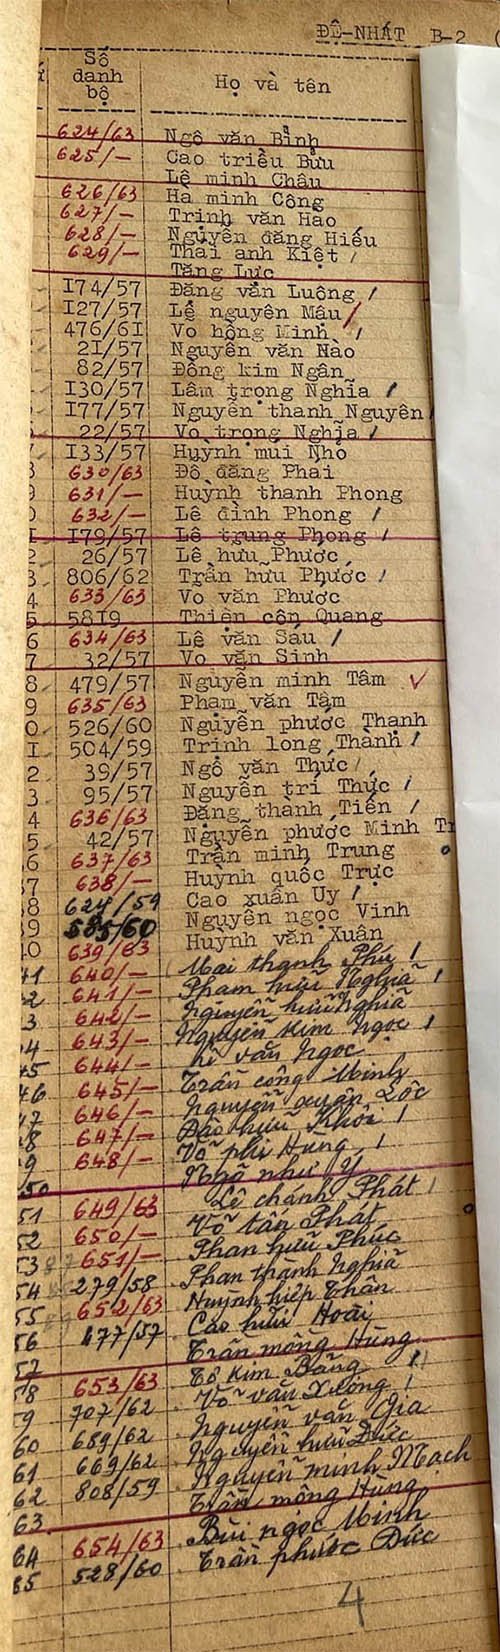 ĐỆ-NHẤT B-2 (
Số danh bộ Họ và tên
624/63 Ngô văn Bỉnh
625/- Cao triều Bửu
Lê minh Châu
626/63 Hà minh Công
627/- Trịnh văn Hào
628/- Nguyễn đăng Hiếu
629/- Thái anh Kiệt /
Tăng Lực
I74/57 Đặng văn Luông /
I27/57 Lê nguyên Mâu /
476/6I Vo hồng Minh /
2I/57 Nguyễn văn Nào
82/57 Đồng kim Ngân
I30/57 Lâm trọng Nghĩa /
I77/57 Nguyễn thanh Nguyên /
22/57 Vo trọng Nghĩa /
I33/57 Huỳnh mùi Nhỏ
630/63 Đỗ đăng Phai
631/- Huỳnh thanh Phong
632/- Lê đình Phong /
I79/57 Lê trung Phong /
26/57 Lê hưu Phước
3 806/62 Trần hữu Phước /
4 633/63 Vo văn Phược
5 58I9 Thiện côn Quang
6 634/63 Lê văn Sáu /
7 32/57 Vo văn Sinh
8 479/57 Nguyễn minh Tâm ✓
9 635/63 Phạm văn Tâm
0 526/60 Nguyễn phước Thạnh
I 504/59 Trinh long Thành /
2 39/57 Ngô văn Thức /
3 95/57 Nguyễn trí Thức /
4 636/63 Đặng thành Tiến /
5 42/57 Nguyễn phước Minh Tr
6 637/63 Trần minh Trung
7 638/- Huỳnh quốc Trực
8 624/59 Cao xuân Uy /
9 585/60 Nguyễn ngọc Vinh
40 639/63 Huỳnh văn Xuân
41 640/- Mai thạnh Phú /
42 641/- Phạm hữu Nghĩa /
3 642/- Nguyễn hữu Nghĩa
44 643/- Nguyễn Kim Ngọc /
45 644/- văn Ngọc
46 645/- Trần công Minh
47 646/- Nguyễn xuân Lộc
48 647/- Đào hữu Khôi /
9 648/- Võ phi Hùng /
50 Ngô như Ý
51 649/63 Lê chánh Phát /
52 650/- Võ tấn Phát
53 651/- Phan hữu Phúc
54 279/58 Phan thành Nghĩa
55 652/63 Huỳnh hiệp Thân
56 477/57 Cao hữu Hoài
57 Trần mông Hùng
58 653/63 Tô Kim Bằng /
59 707/62 Võ văn Dương /
60 689/62 Nguyễn văn Gia
61 669/62 Nguyễn hữu Đức
62 808/59 Nguyễn minh Mạch
63 Trần mông Hùng
64 654/63 Bùi ngọc Minh
65 528/60 Trần phước Đức
4